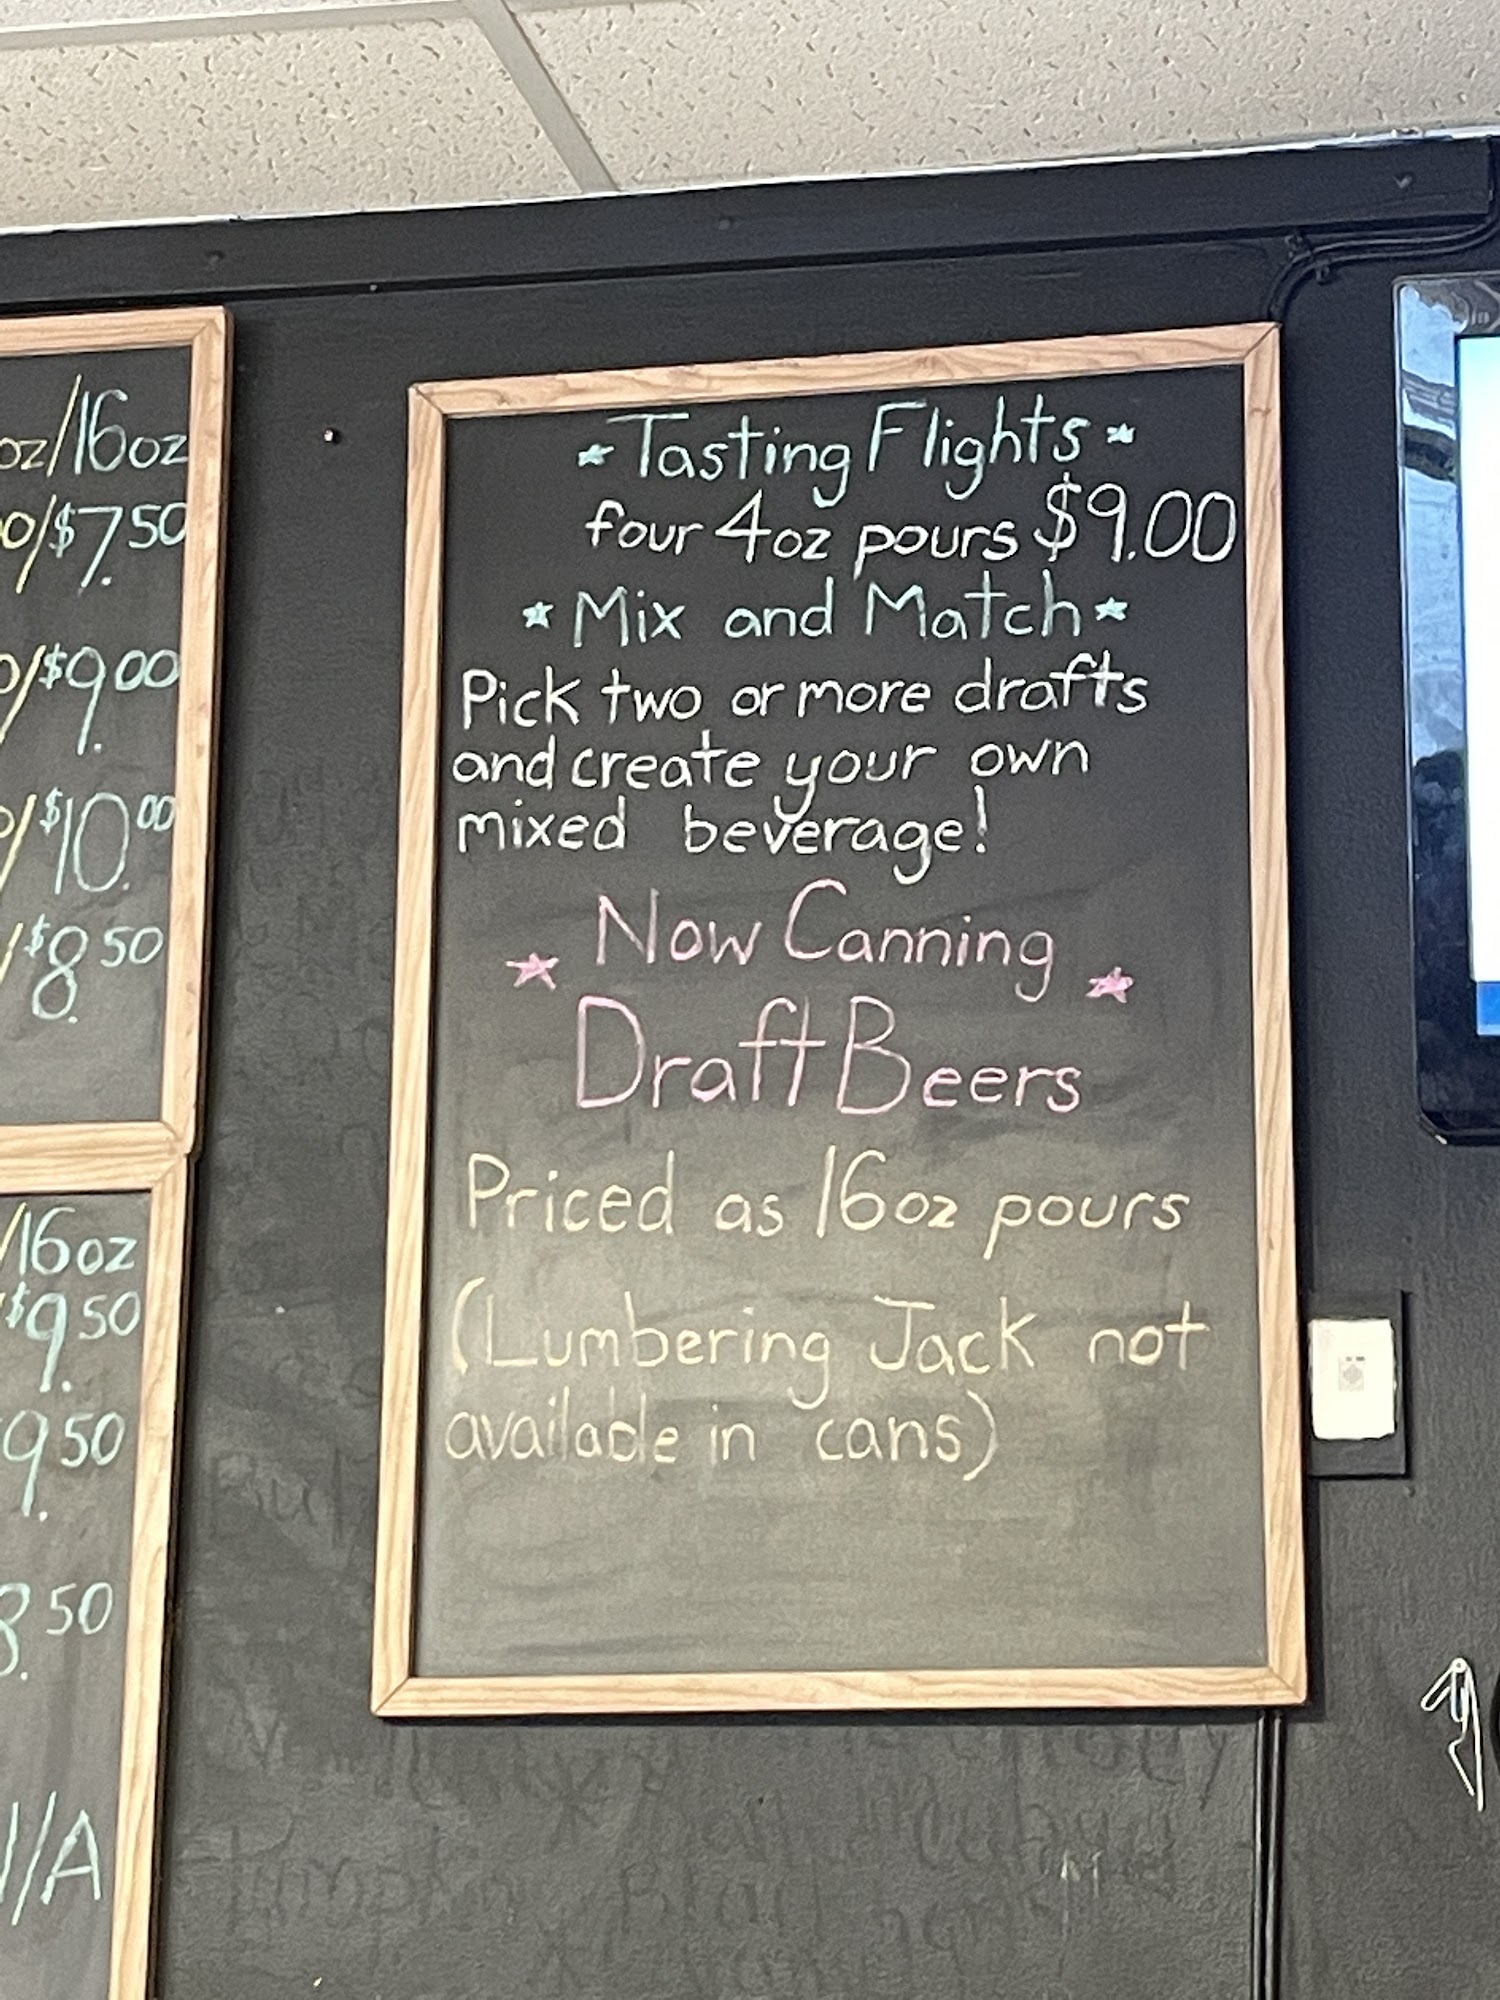 oz/16oz
0/$7.50
/$9.00
/$10.00
/$8.50
/16oz
$9.50
9.50
8.50
/A
*Tasting Flights*
four 4oz pours $9.00
*Mix and Match*
Pick two or more drafts
and create your own
mixed beverage!
* Now Canning *
Draft Beers
Priced as 16oz pours
(Lumbering Jack not
available in cans)